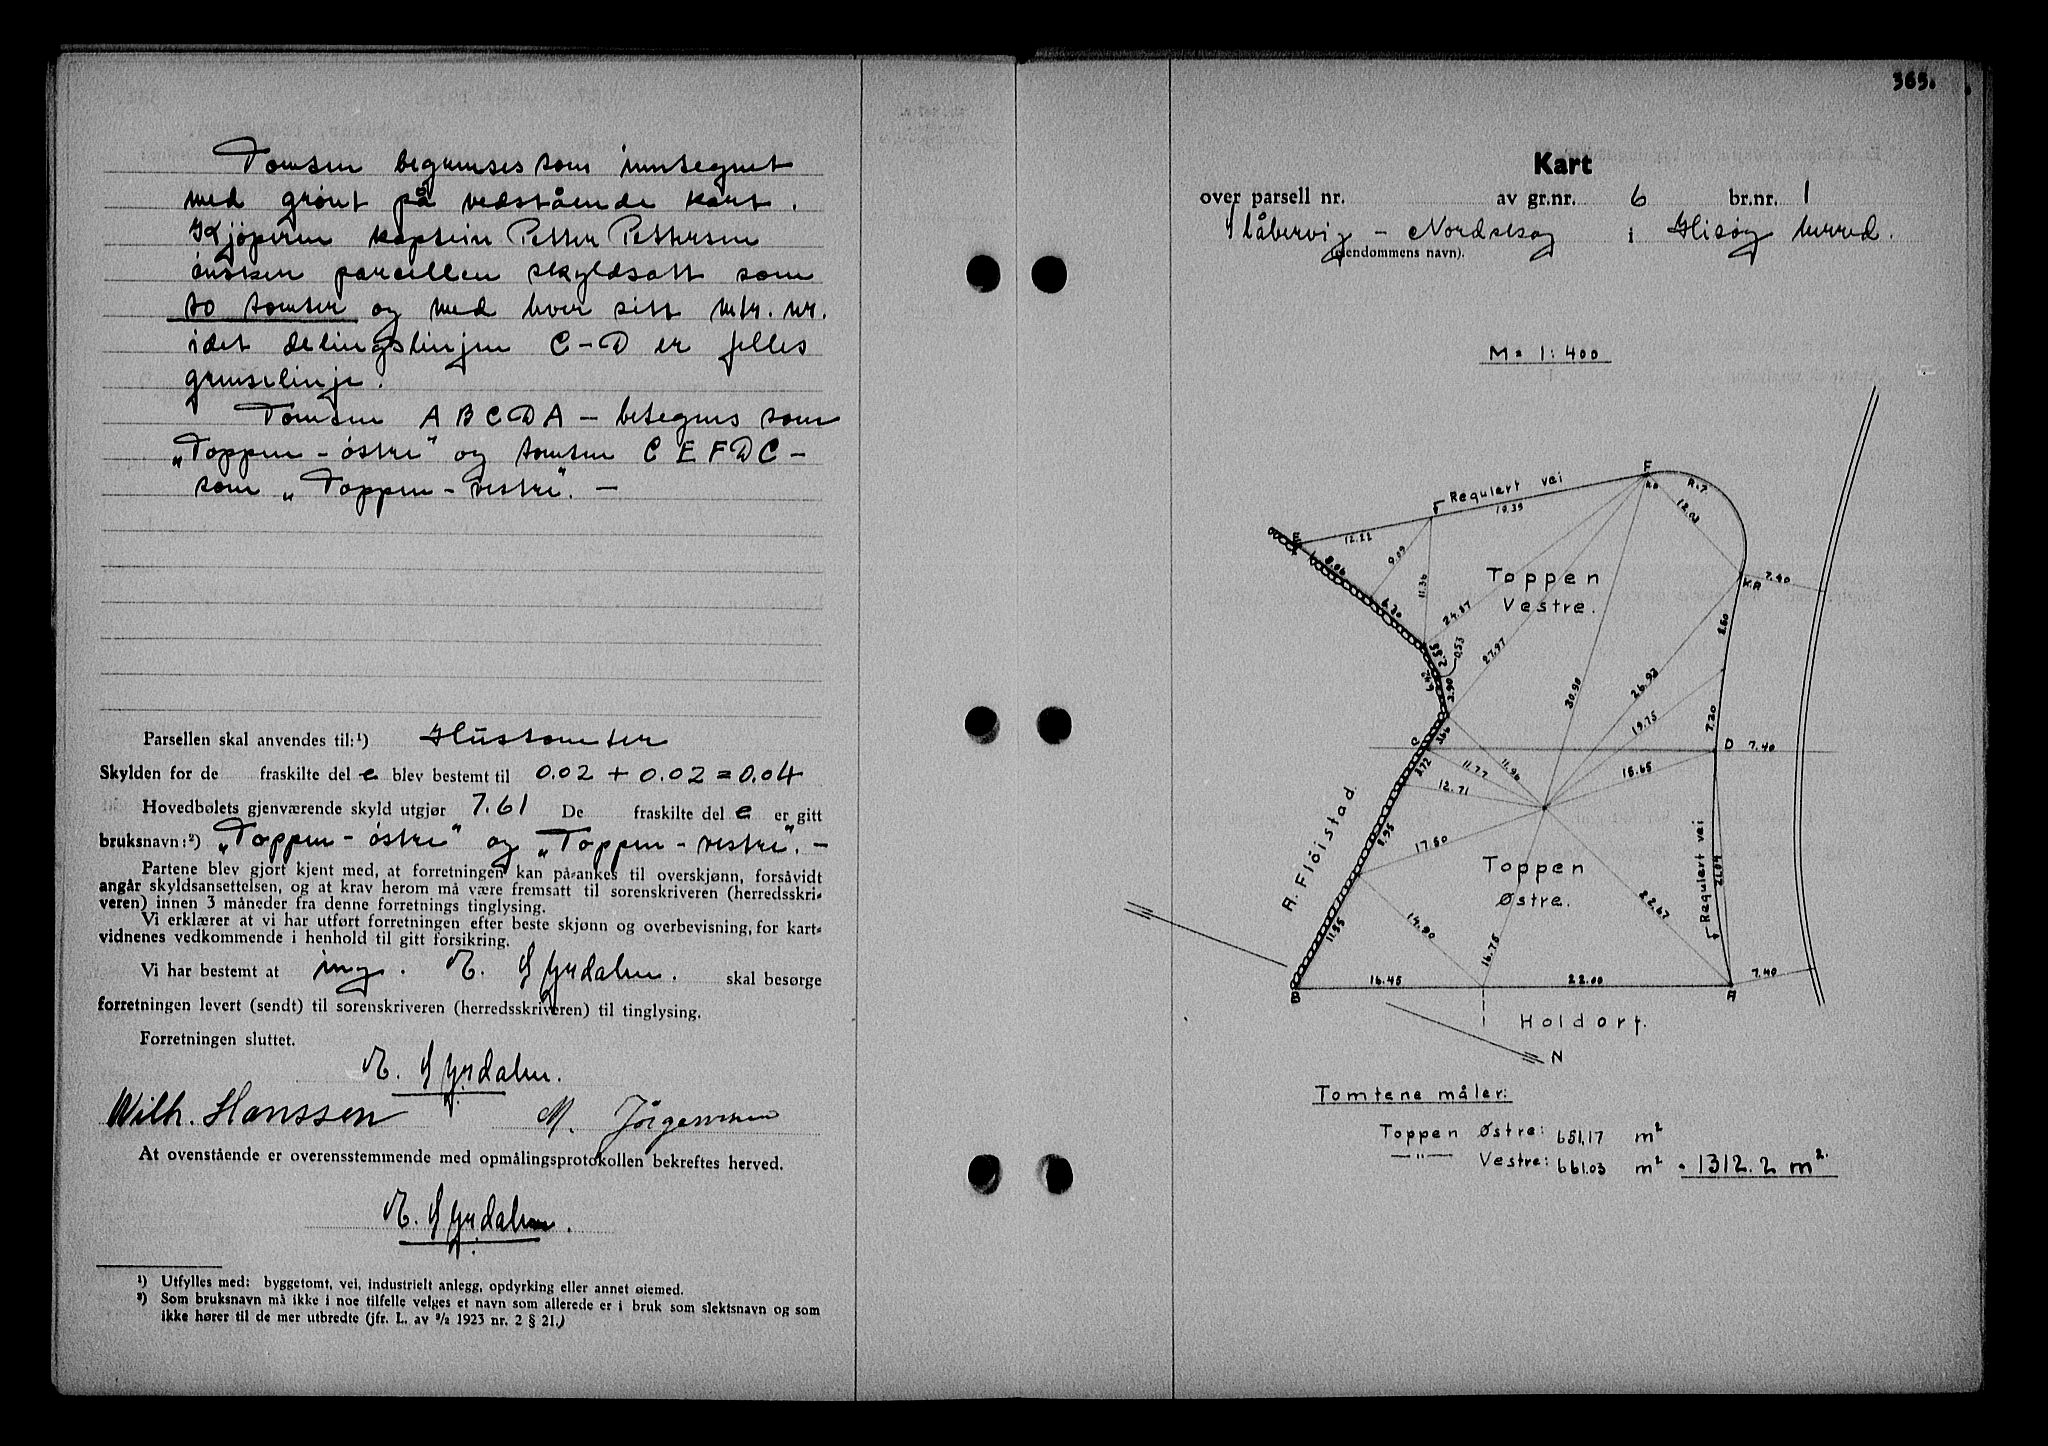 Tomten begrenses som inntegnet
med grönt på vedstående kart.
Kjöperen kaptein Petter Pettersen
önsker parcellen skyldsatt som
to tomter og med hver sitt mtr. nr.
idet delingslinjen C-D er felles
grenselinje.
Tomten A B C D A - betegnes som
„Toppen - östre" og tomten C E F D C -
som „Toppen - vestre". -
Parsellen skal anvendes til:¹) Hustomter
Skylden for de fraskilte del e blev bestemt til 0.02 + 0.02 = 0.04
Hovedbølets gjenværende skyld utgjør 7.61 De fraskilte del e er gitt
bruksnavn:²) „Toppen - östre" og „Toppen - vestre". -
Partene blev gjort kjent med, at forretningen kan på-ankes til overskjønn, forsåvidt
angår skyldsansettelsen, og at krav herom må være fremsatt til sorenskriveren (herredsskri-
veren) innen 3 måneder fra denne forretnings tinglysing.
Vi erklærer at vi har utført forretningen efter beste skjønn og overbevisning, for kart-
vidnenes vedkommende i henhold til gitt forsikring.
Vi har bestemt at ing. N. Syrdalen. skal besørge
forretningen levert (sendt) til sorenskriveren (herredsskriveren) til tinglysing.
Forretningen sluttet.
N. Syrdalen.
Wilh. Hanssen M. Jörgensen
At ovenstående er overensstemmende med opmålingsprotokollen bekreftes herved.
N. Syrdalen.
¹) Utfylles med: byggetomt, vei, industrielt anlegg, opdyrking eller annet øiemed.
²) Som bruksnavn må ikke i noe tilfelle velges et navn som allerede er i bruk som slektsnavn og som
ikke hører til de mer utbredte (jfr. L. av ⁹/₂ 1923 nr. 2 § 21.)
365.
Kart
over parsell nr. av gr.nr. 6 br.nr. 1
Slåbervig - Nordskog i Hisøy herred.
(eiendommens navn).
M = 1:400
F
R=7
Regulert vei
12.03
19.39
E
12.22
9.09
8.06
11.36
Toppen
Vestre.
K.A
7.40
6.30
24.87
8.60
0.53
2.58
27.97
6.42
3.90
30.90
26.93
19.75
7.20
C
3.66
D
7.40
3.72
11.77
11.96
15.65
12.71
A. Flöistad
8.95
17.60
Toppen
Østre.
Regulert vei
21.04
22.67
11.55
14.90
16.75
16.45
22.00
7.40
B
A
Holdorf.
N
Tomtene måler:
Toppen Østre: 651,17 m²
—"— Vestre: 661.03 m² = 1312.2 m².